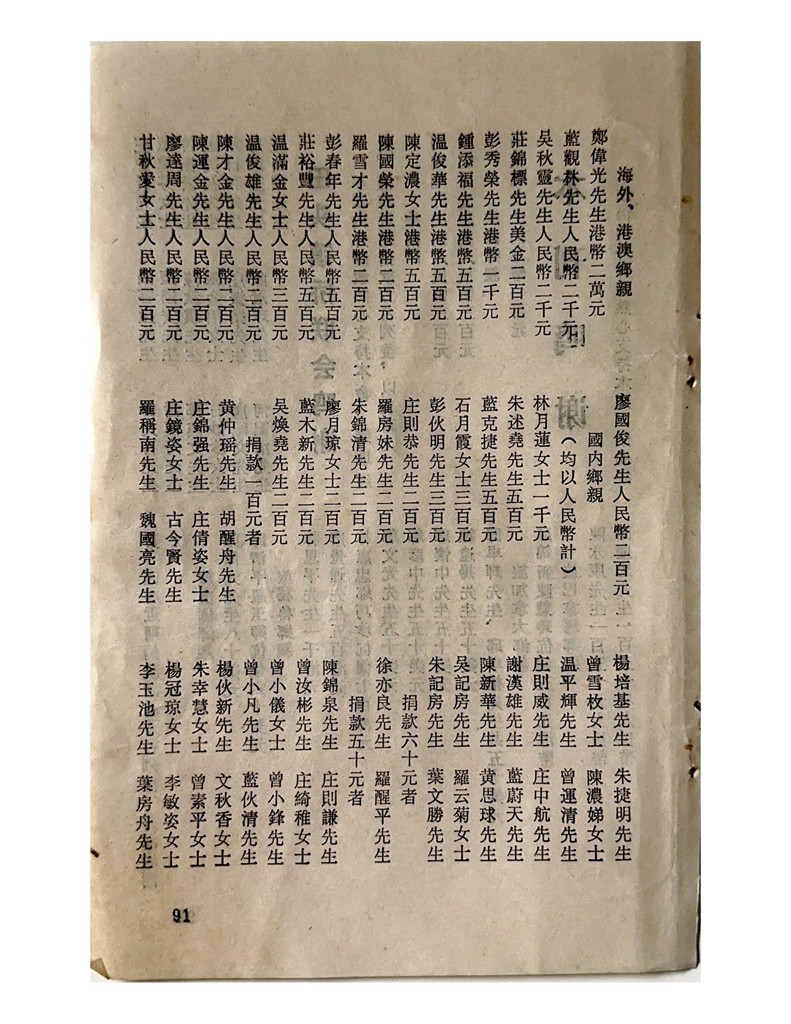 海外、港澳鄉親
鄭偉光先生港幣二萬元
藍觀林先生人民幣二千元
吳秋靈先生人民幣二千元
莊錦標先生美金二百元
彭秀榮先生港幣一千元
鍾添福先生港幣五百元
溫俊華先生港幣五百元
陳定濃女士港幣五百元
陳國榮先生港幣二百元
羅雪才先生港幣二百元
彭春年先生人民幣五百元
莊裕豐先生人民幣五百元
溫滿金女士人民幣三百元
溫俊雄先生人民幣二百元
陳才金先生人民幣二百元
陳運金先生人民幣二百元
廖達周先生人民幣二百元
甘秋愛女士人民幣二百元
廖國俊先生人民幣二百元
國內鄉親
(均以人民幣計)
林月蓮女士一千元
朱述堯先生五百元
藍克捷先生五百元
石月霞女士三百元
彭伙明先生三百元
庄則恭先生二百元
羅房妹先生二百元
朱錦清先生二百元
廖月琼女士二百元
藍木新先生二百元
吳煥堯先生二百元
捐款一百元者
黄仲瑶先生 胡醒舟先生
庄錦强先生 庄倩姿女士
庄鏡姿女士 古今賢先生
羅稱南先生 魏國亮先生
楊培基先生 朱捷明先生
曾雪枚女士 陳濃娣女士
温平輝先生 曾運清先生
庄則威先生 庄中航先生
謝漢雄先生 藍蔚天先生
陳新華先生 黄思球先生
吳記房先生 羅云菊女士
朱記房先生 葉文勝先生
捐款六十元者
徐亦良先生 羅醒平先生
捐款五十元者
陳錦泉先生 庄則謙先生
曾汝彬先生 庄綺稚女士
曾小儀女士 曾小鋒先生
曾小凡先生 藍伙清先生
楊伙新先生 文秋香女士
朱幸慧女士 曾素平女士
楊冠琼女士 李敏姿女士
李玉池先生 葉房舟先生
91